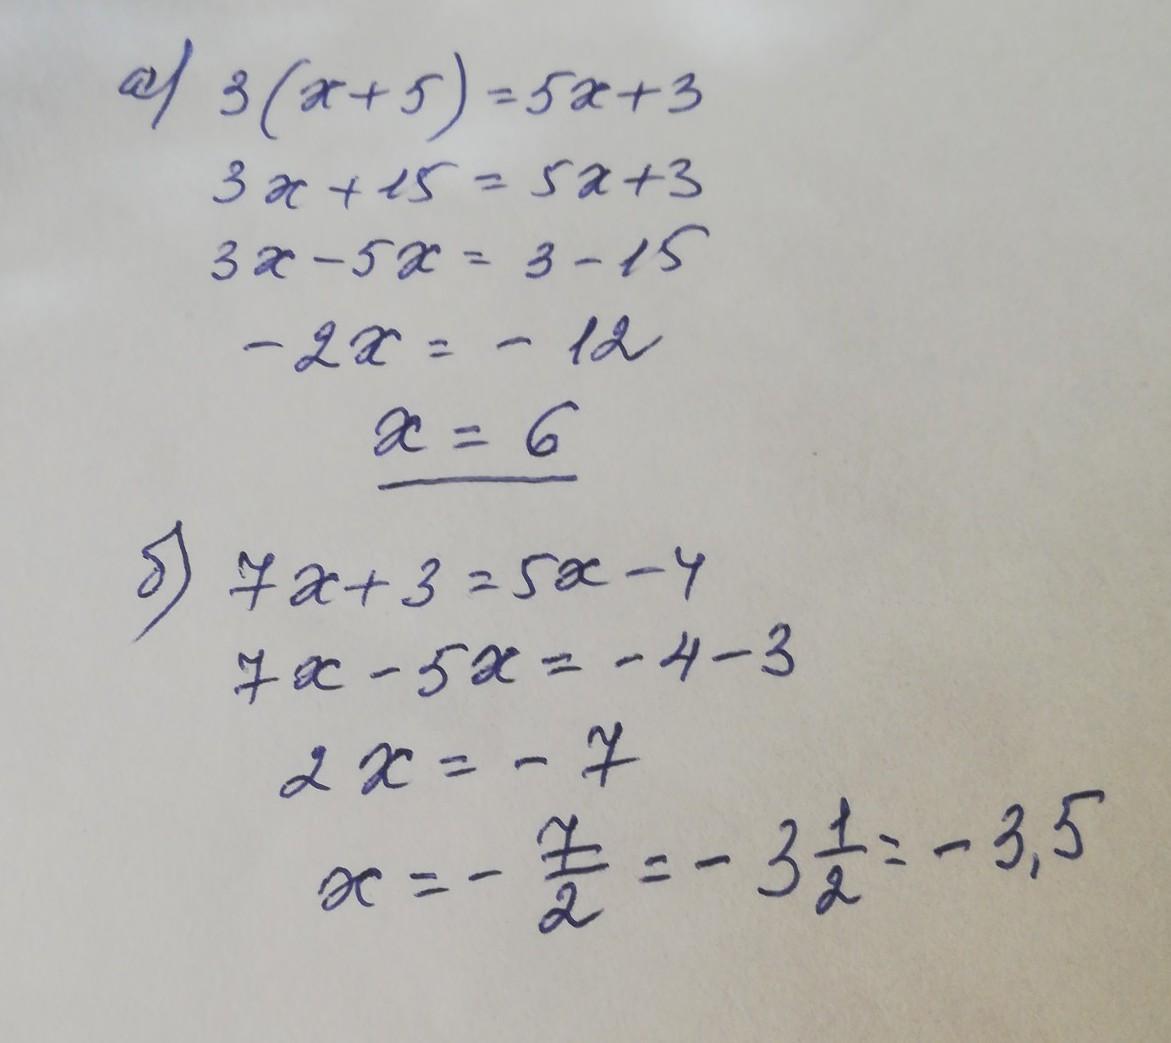 а) 3(x+5)=5x+3
3x+15=5x+3
3x-5x=3-15
-2x=-12
x=6
б) 7x+3=5x-4
7x-5x=-4-3
2x=-7
x=-7/2=-3 1/2=-3,5